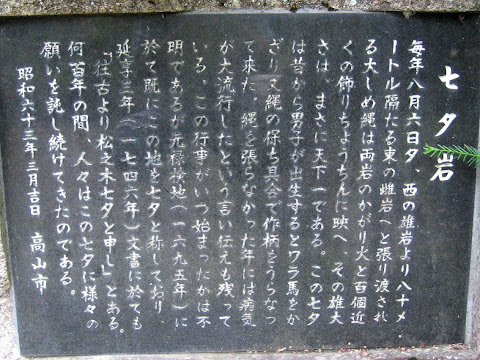 七夕岩
毎年八月六日夕、西の雄岩より八十メ
ートル隔たる東の雌岩へと張り渡され
る大しめ縄は両岩のかがり火と百個近
くの飾りちょうちんに映へ その雄大
さは、まさに天下一である。この七夕
は昔から男子が出生するとワラ馬をか
ざり又縄の保ち具合で作柄をうらなっ
て来た。縄を張らなかった年には病気
が大流行したという言い伝えも残って
いる。この行事がいつ始まったかは不
明であるが元禄検地(一六九五年)に
於て既にこの地を七夕と称しており、
延享三年(一七四六年)文書に於ても
「往古より松之木七夕と申し」とある。
何百年の間、人々はこの七夕に様々の
願いを託し続けてきたのである。
昭和六十三年三月吉日 高山市